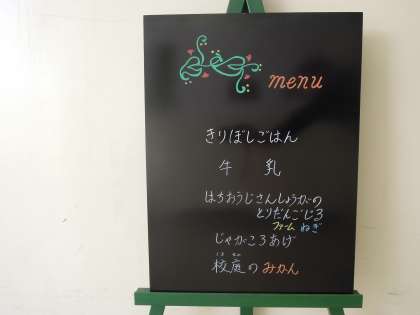 menu
きりぼしごはん
牛 乳
はちおうじさんしょうがの
とりだんごじる
ファーム ねぎ
じゃがころあげ
校庭のみかん